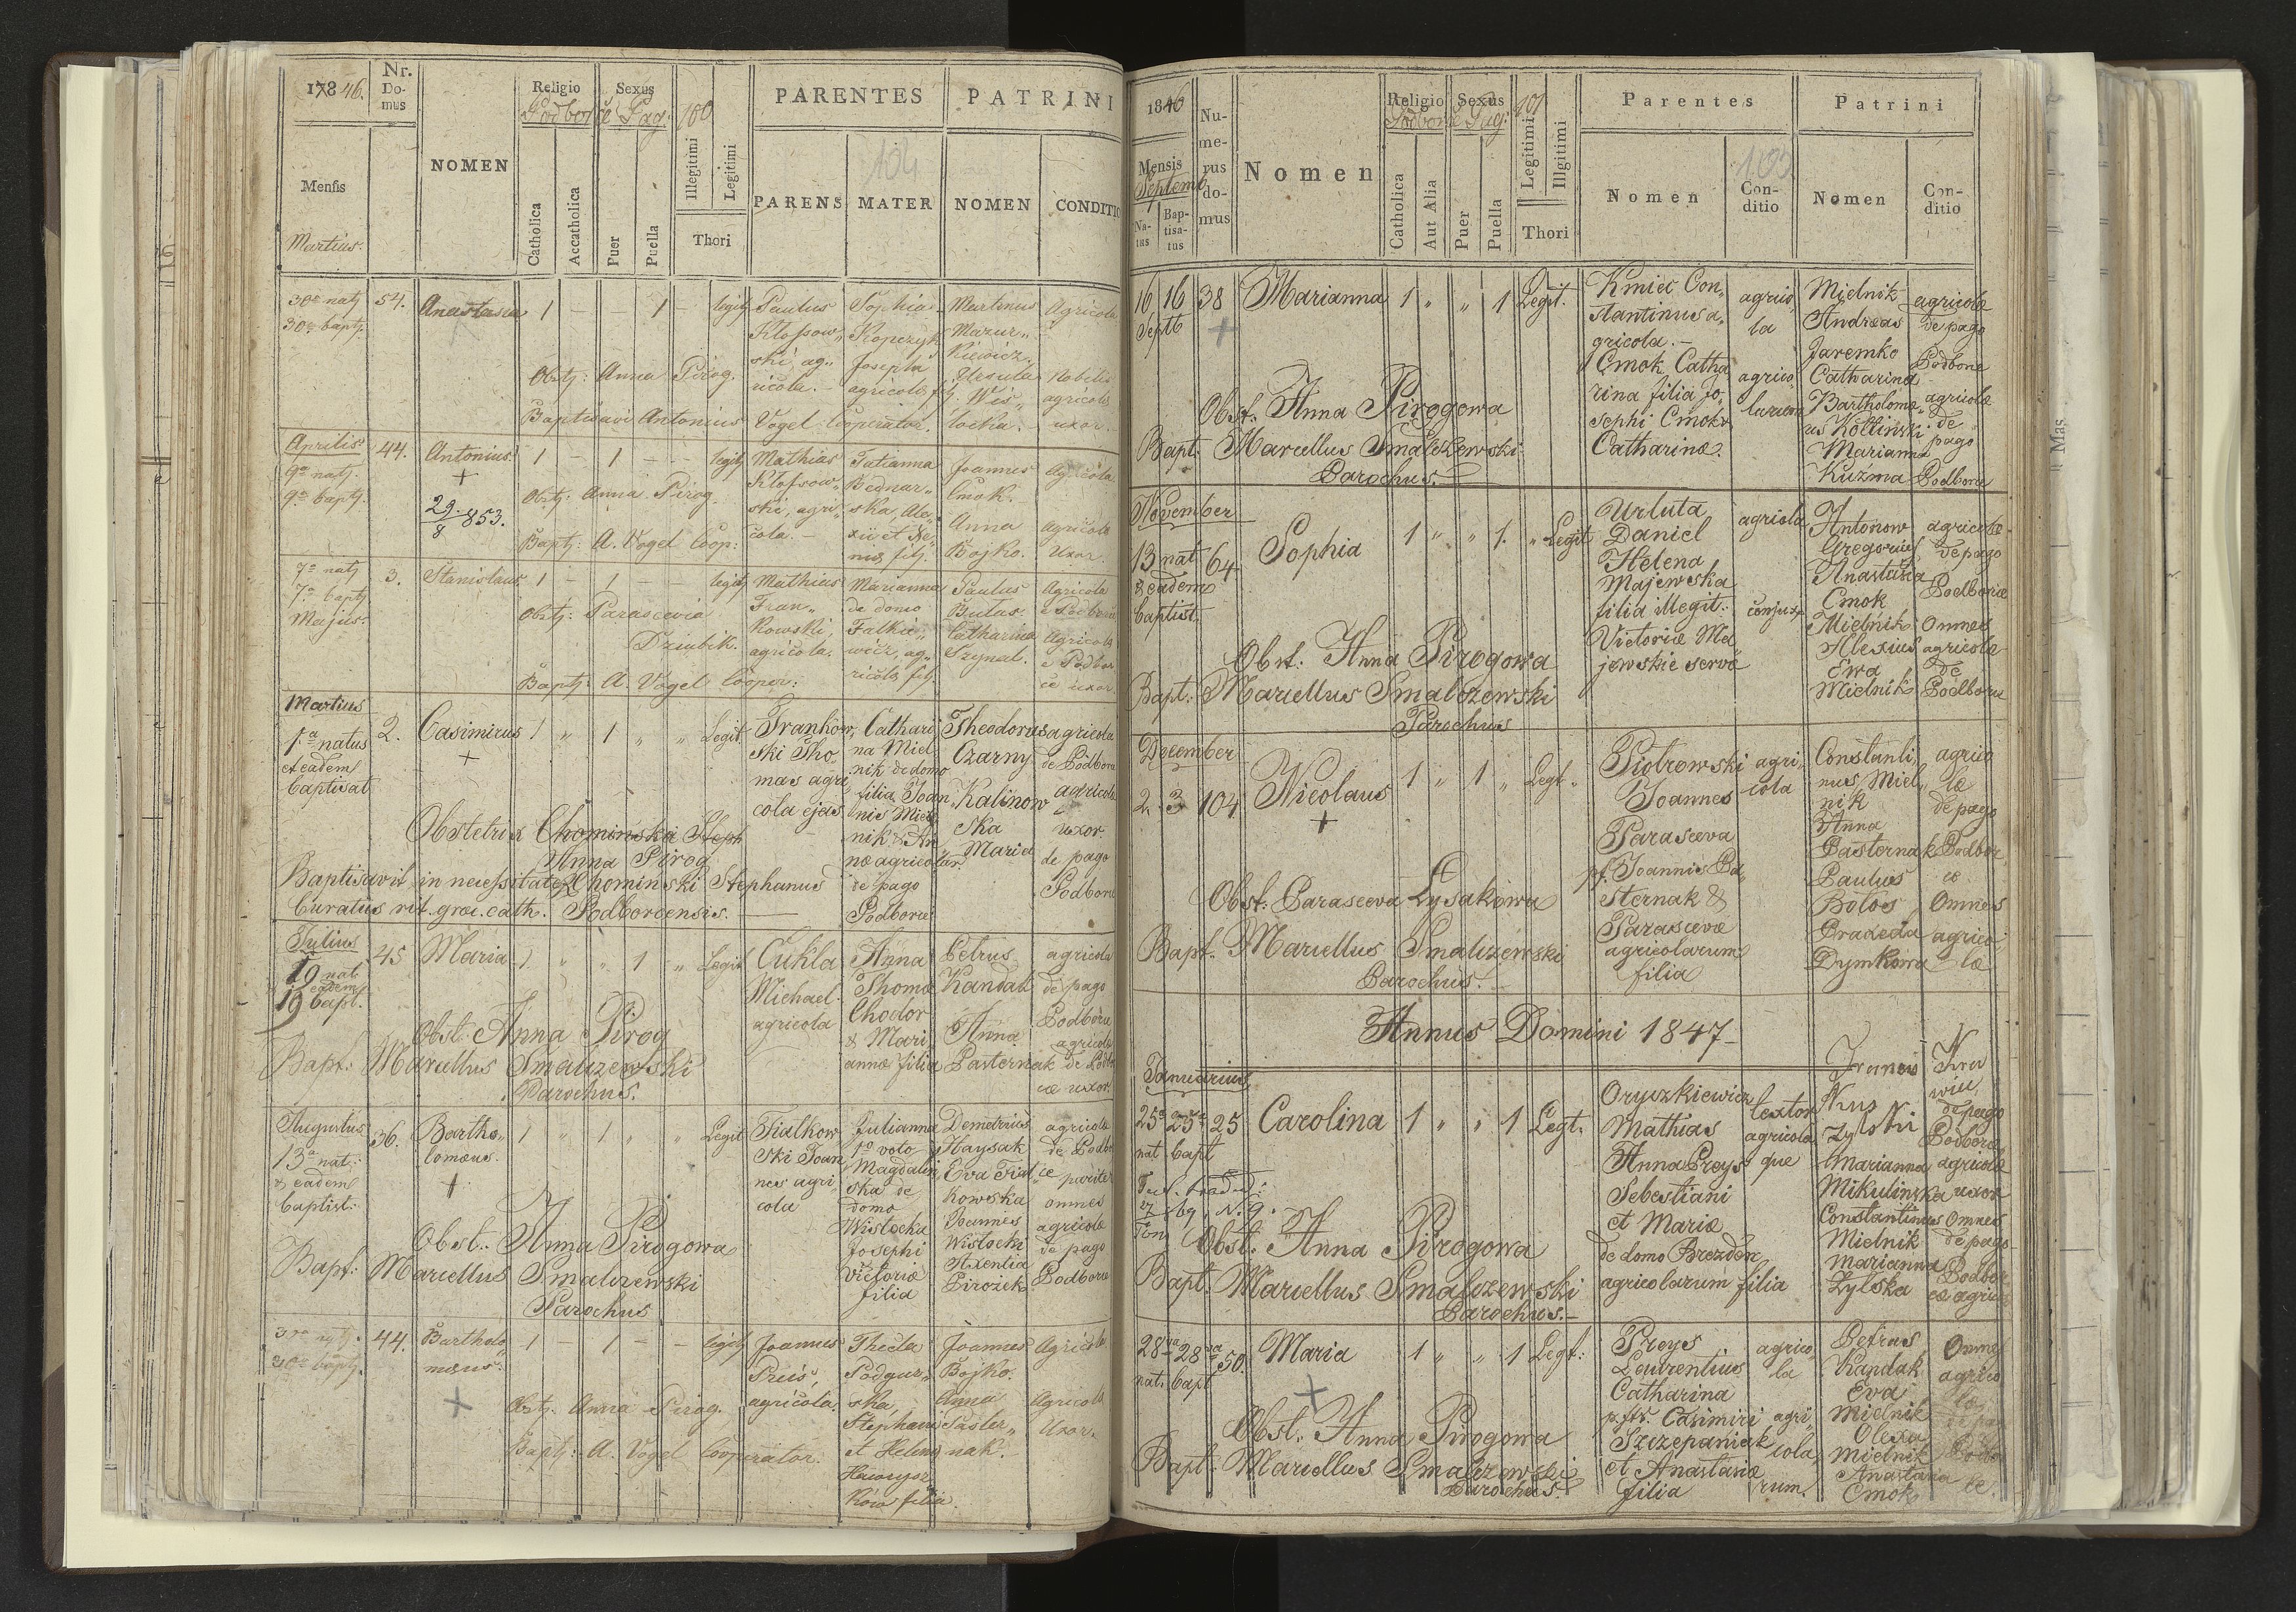 1846.
Nr. Domus
NOMEN
Religio
Sexus
Podborce Pag. 100
PARENTES
PATRINI
104
Mensis
Martius.
Catholica
Accatholica
Puer
Puella
Illegitimi
Legitimi
Thori
PARENS
MATER
NOMEN
CONDITIO
30a natj 54. Anastasia 1 – – 1 – legitj
30a baptj.
Paulus
Klossow„
ski ag„
ricola. –
Sophia
Kopczyk
Josephi
agricola fj.
Martinus
Mazur„
kiewicz.
Ursula
Wis„
locka.
Agricola
Nobilis
agricola
uxor.
Obstj: Anna Pirog.
Baptisavi Antonius Vogel Cooperator.
Aprilis 44. Antonius. 1 – 1 – – legitj
9a natj.
9a baptj.
+
29/8 853.
Mathias
Klossow„
ski, agri„
cola. –
Tatianna
Bednar„
ska, Ale„
xii et Xe„
niæ filj.
Joannes
Cmok.
Anna
Bojko.
Agricola
agricola
Uxor.
Obstj: Anna Pirog.
Baptj: A. Vogel Coop:
7a natj 3. Stanislaus 1 – 1 – – legitj
7a baptj
Majus.
Mathias
Fran„
kowski,
agricola.
Marianna
de domo
Falkie„
wicz, ag„
ricola filj
Paulus
Bulas
Catharina
Szynal.
Agricola
e Podborce
Agricola
e Podbor
ce uxor.
Obstj: Parascevia
Dziubik.
Baptj: A. Vogel Cooper:
Martius
1.a natus 2. Casimirus 1 „ 1 „ „ Legit.
et eadem
baptisat
+
Frankow„
ski Tho„
mas agri„
cola ejas
Cathari„
na Miel
nik de domo
filia Joan
nis Miel
nik & An
næ agricolar.
de pago
Podborce
Theodorus
Czarny
Kalinow
ska
Maria
agricola
de Podborce
agricola
uxor
de pago
Podborce
Obstetrix Chominska Steph
Anna Pirog
Baptisavit in necessitate Chominski Stephanus
Curatus rit. græ. cath. Podborcensis.
Julius
19 nat 45 Maria 1 „ „ 1 „ Legit
eadem
19 bapt.
Cukla
Michael
agricola
Anna
Thomæ
Chodor
& Mari
annæ filia
Petrus
Kandak
Anna
Pasternak
agricola
de pago
Podborce
agricola
de Podbor
ce uxor
Obst: Anna Pirog
Bapt: Marcellus Smalczewski
Parochus.
Augustus 36. Bartho„ 1 „ 1 „ „ Legit
13a nat: lomæus.
& eadem
baptist:
+
Fialkow
ski Joan
nes agri
cola
Julianna
1o voto
Magdalin
ska de
domo
Wistocka
Josephi
Victoriæ
filia
Demetrius
Haysak
Eva Fial
kowska
Joannes
Wistocki
Axenlia
Pirozek
agricola
de Podbor
ce pariter
omnes
agricolæ
de pago
Podborce
Obst: Anna Pirogowa
Bapt: Marcellus Smalczewski
Parochus
44. Bartholo„ 1 – 1 – – legitj
30a baptj. mæus.
+
Joannes
Preis,
agricola.
Thecla
Podgur„
ska,
Stephani
et Helenæ
filia.
Joannes
Bojko.
Anna
Paster„
nak.
Agricola
Agricola
Uxor.
Obstj. Anna Pirog.
Baptj: A. Vogel Cooperator.
1846
Numerus domus
Nomen
Religio
Sexus
Podborce Pag: 101
Parentes
Patrini
105
Mensis
Septemb
Natus
Baptisatus
Catholica
Aut Alia
Puer
Puella
Legitimi
Illgitimi
Thori
Nomen
Conditio
Nomen
Conditio
16 16 38 Marianna 1 „ „ 1 Legit.
Septb +
Kmiec Con„
stantinus a„
gricola. –
Cmok Catha
rina filia Jo„
sephi Cmok &
Catharinæ.
agrico„
la
agrico„
larum
Mielnik
Andreas
Jaremko
Catharina
Bartholomæ„
us Koltinski
Marianna
Kuzma
agricolæ
de pago
Podborce
agricolæ
de
pago
Podborce
Obst. Anna Pirogowa
Bapt. Marcellus Smalczewski
Parochus. –
November
13 nat 64 Sophia 1 „ „ 1. „ Legit
& eadem
baptist.
Urluta
Daniel
Helena
Majewska
filia illegit:
Victoriæ Ma„
jewskie servæ
agricola
conjux
Antonow
Gregorius
Anastasia
Cmok
Mielnik
Alexius
Ewa
Mielnik
agricolæ
de pago
Podborce
Omnes
agricolæ
de
Podborce
Obst: Anna Pirogowa
Bapt: Marcellus Smalczewski
Parochus
December
2 3 104 Nicolaus 1 „ 1 „ Legt„
+
Piotrowski
Joannes
Parasceva
pf. Joannis Pa„
sternak &
Parascevæ
agricolarum
filia
agri„
cola
Constanti„
nus Miel„
nik
Anna
Pasternak
Paulus
Bolos
Praxeda
Dymkowa
agrico
læ
de pago
Podbor
ce
Omnes
agrico
læ
Obst: Parasceva Lysakowa
Bapt. Marcellus Smalczewski
Parochus.
Annus Domini 1847
Januarius
25a 25a 25 Carolina 1 „ „ 1 Legt.
nat bapt
Oryszkiewicz
Mathias
Anna Preys
Sebestiani
et Mariæ
de domo Brezden
agricolarum filia
textor
agricola
que
Francis
kus
Zylski
Marianna
Mikulinska
Constantinus
Mielnik
Marianna
Zylska
Kra
wiec
de pago
Podborce
agricolæ
uxor
Omnes
de pago
Podbor
ce agric
Obst. Anna Pirogowa
Bapt. Marcellus Smalczewski
Parochus. –
28va 28va 50. Maria 1 „ „ 1 Legt:
nat. bapt
+
Preys
Laurentius
Catharina
p. ftr. Casimiri
Szczepaniak
et Anastasiæ
filia
agrico„
la
agri„
cola
rum.
Petrus
Kandak
Eva
Mielnik
Olexa
Mielnik
Anastasia
Cmok
Omnes
agrico
læ
de pa
Podbor
ce.
Obst: Anna Pirogowa
Bapt: Marcellus Smalczewski
Parochus.